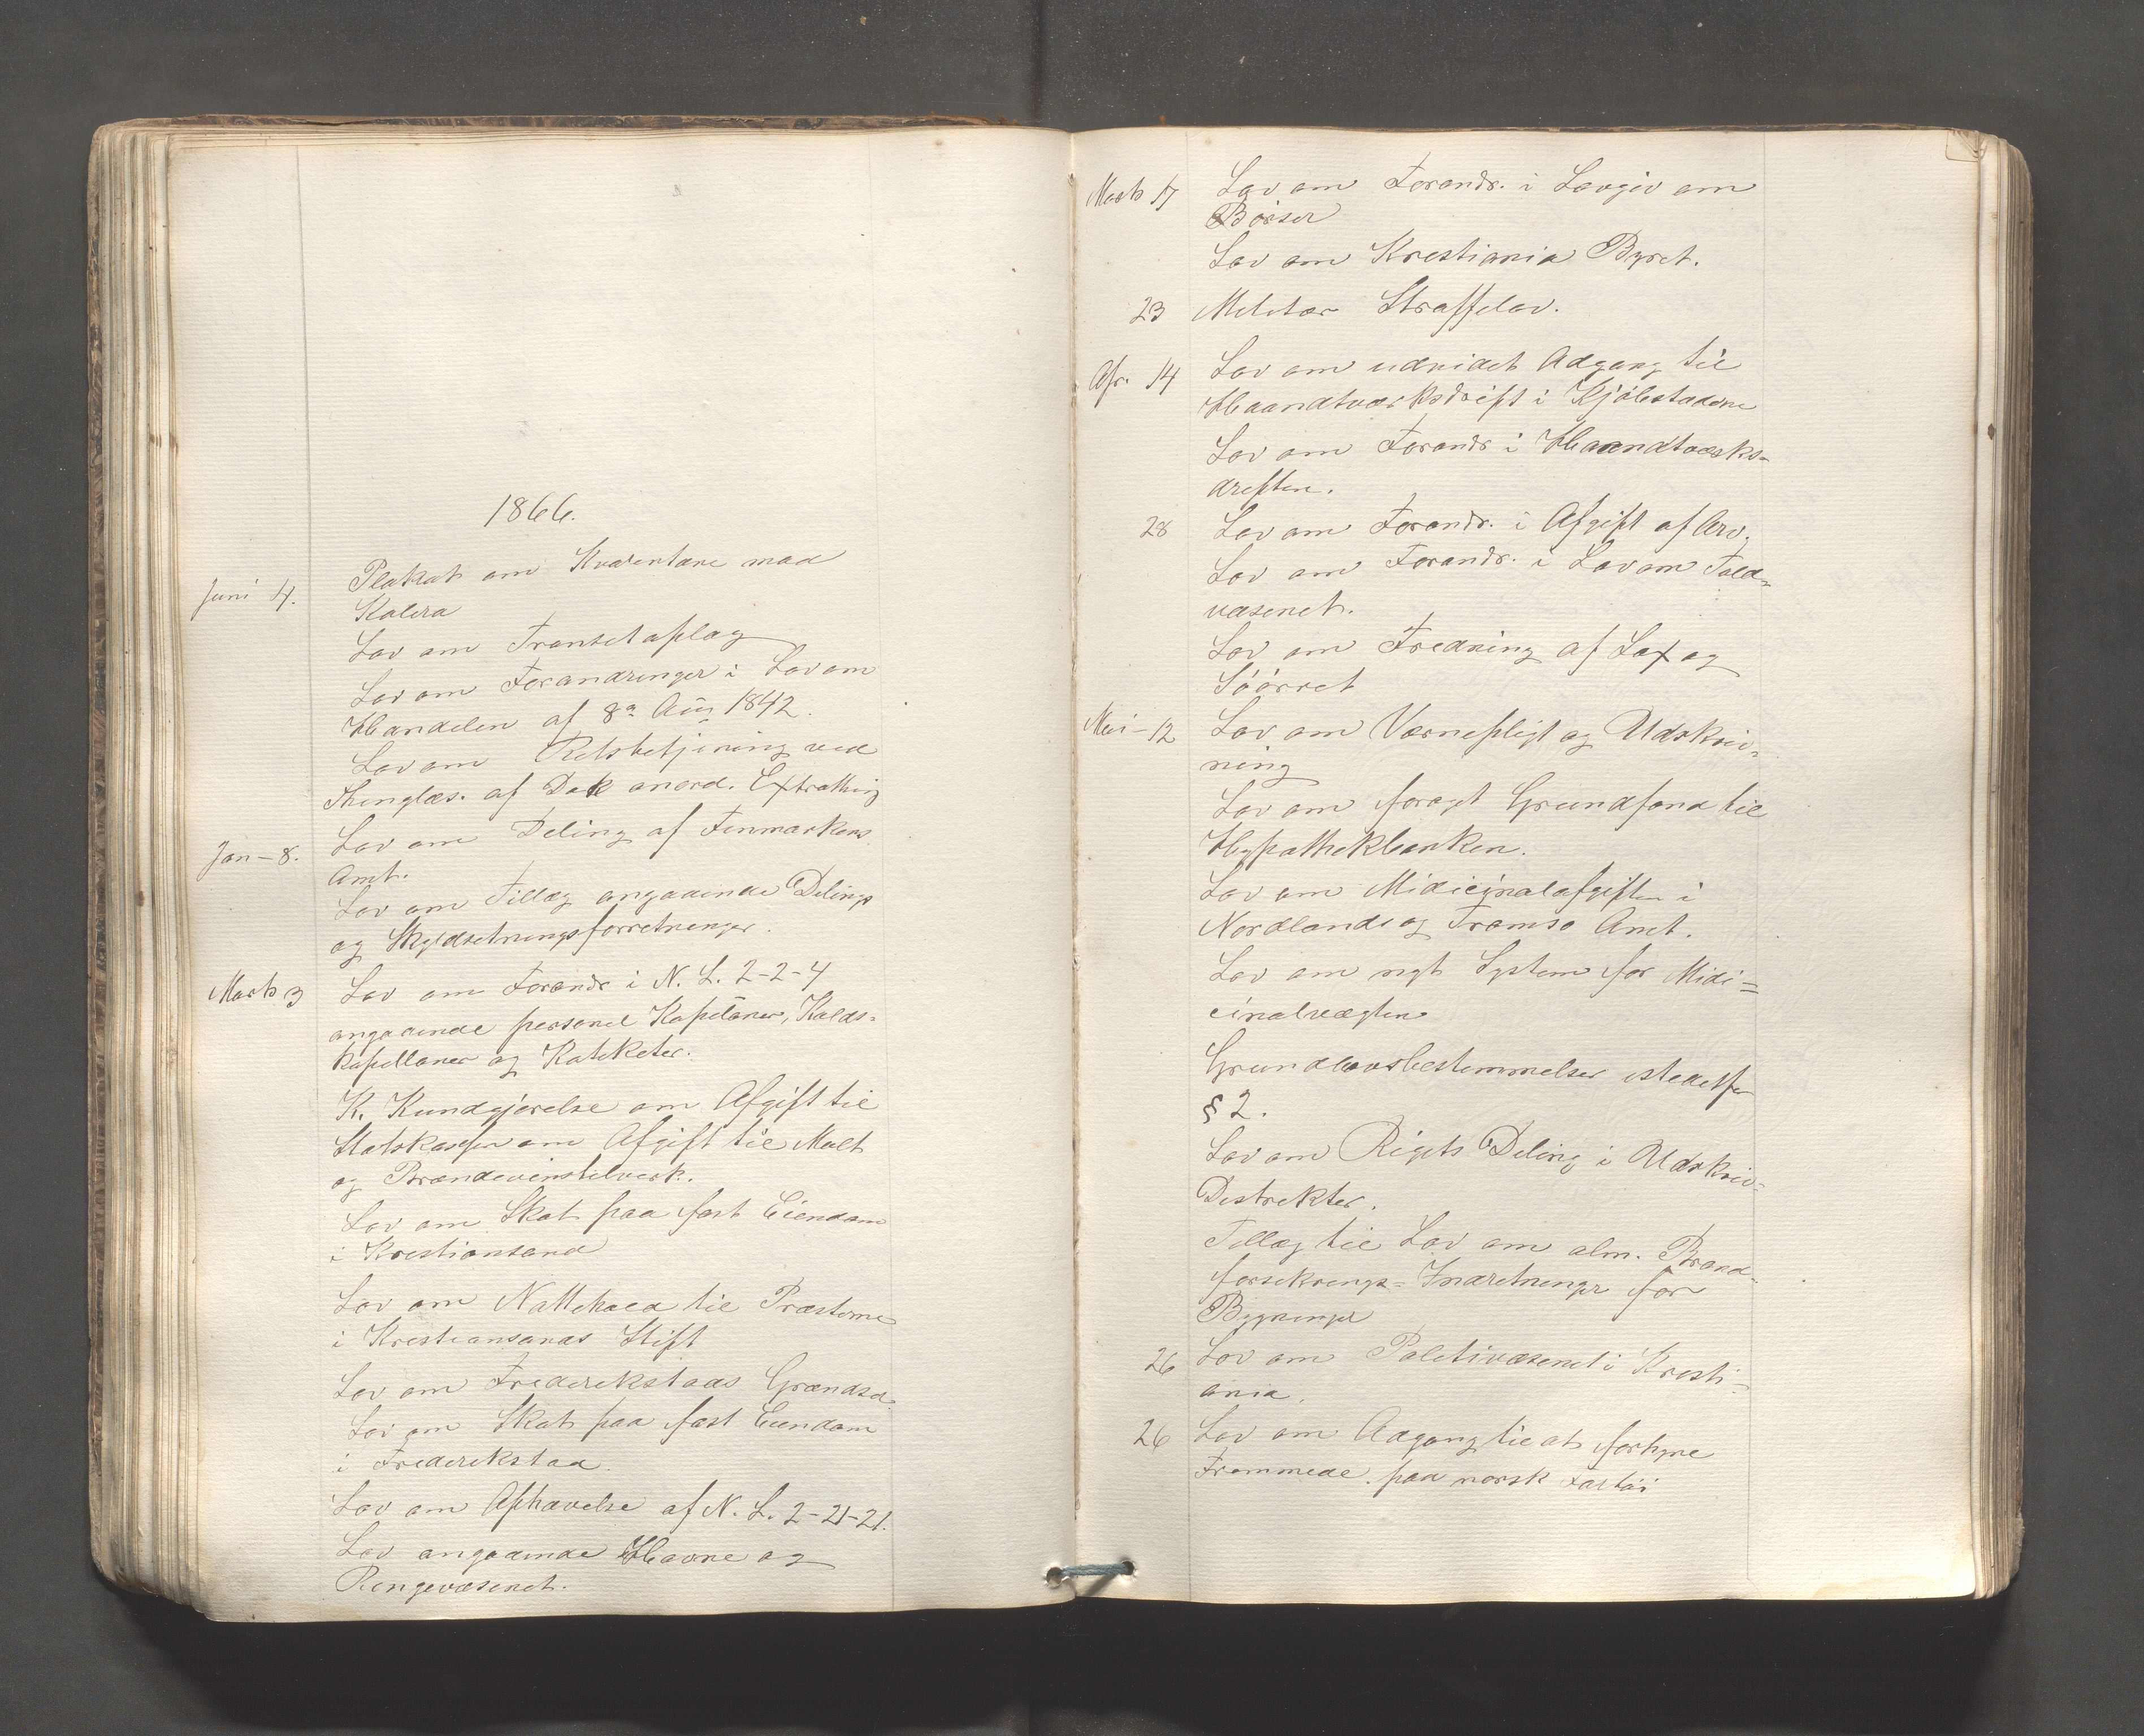 1866.
Juni 4. Plakat om Kvarentæne mod
Kolera
Lov om Transitoplag
Lov om Forandringer i Lov om
Handelen af 8de Aug 1842.
Lov om Retsbetjening ved
Thinglæs. af Dok anord. Extrathing
Jan - 8. Lov om Deling af Finmarkens
Amt.
Lov om Tillæg angaaende Delings
og Skyldsetningsforretninger.
Marts 3 Lov om Forandr i N. L. 2-2-4
angaaende personel Kapelaner, Kalds-
kapellaner og Kateketer.
K. Kundgjørelse om Afgift til
Statskassen om Afgift til Malt
og Brændevinstilverk.
Lov om Skat paa fast Eiendom
i Kristiansand
Lov om Nattehold til Præsterne
i Kristiansands Stift
Lov om Frederikstads Grændse
Lov om Skat paa fast Eiendom
i Frederikstad
Lov om Ophævelse af N. L. 2-21-21.
Lov angaaende Havne og
Ringevæsenet.
Marts 17 Lov om Forandr. i Lovgiv om
Börser
Lov om Kristiania Byret.
23 Militær Straffelov.
Apr. 14 Lov om udvidet Adgang til
Haandtværksdrift i Kjöbstæderne
Lov om Forandr i Haandtværks-
driften.
28 Lov om Forandr. i Afgift af Arv.
Lov om Forandr. i Lov om Told-
væsenet.
Lov om Fredning af Lax og
Söörret
Mai - 12 Lov om Værnepligt og Udskriv-
ning
Lov om foröget Grundfond til
Hypothekbanken.
Lov om Midicinalafgiften i
Nordlands og Tromsö Amt.
Lov om nyt System for Midi=
cinalvægten
Grundlovsbestemmelser istedetfor
§ 2.
Lov om Rigets Deling i Udskriv-
Distrikter.
Tillæg til Lov om alm. Brand-
forsikrings=Indretninger for
Bygninger
26 Lov om Politivæsenet i Kristi-
ania.
26 Lov om Adgang til at forhyre
Fremmede paa norsk Fartöi